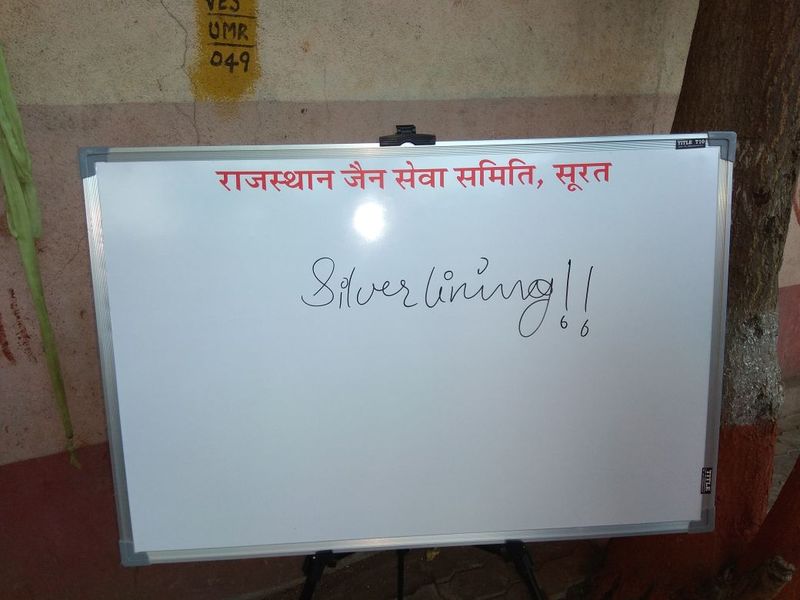 VES
UMR
049
TITLE T10
राजस्थान जैन सेवा समिति, सूरत
Silver lining!!
TITLE